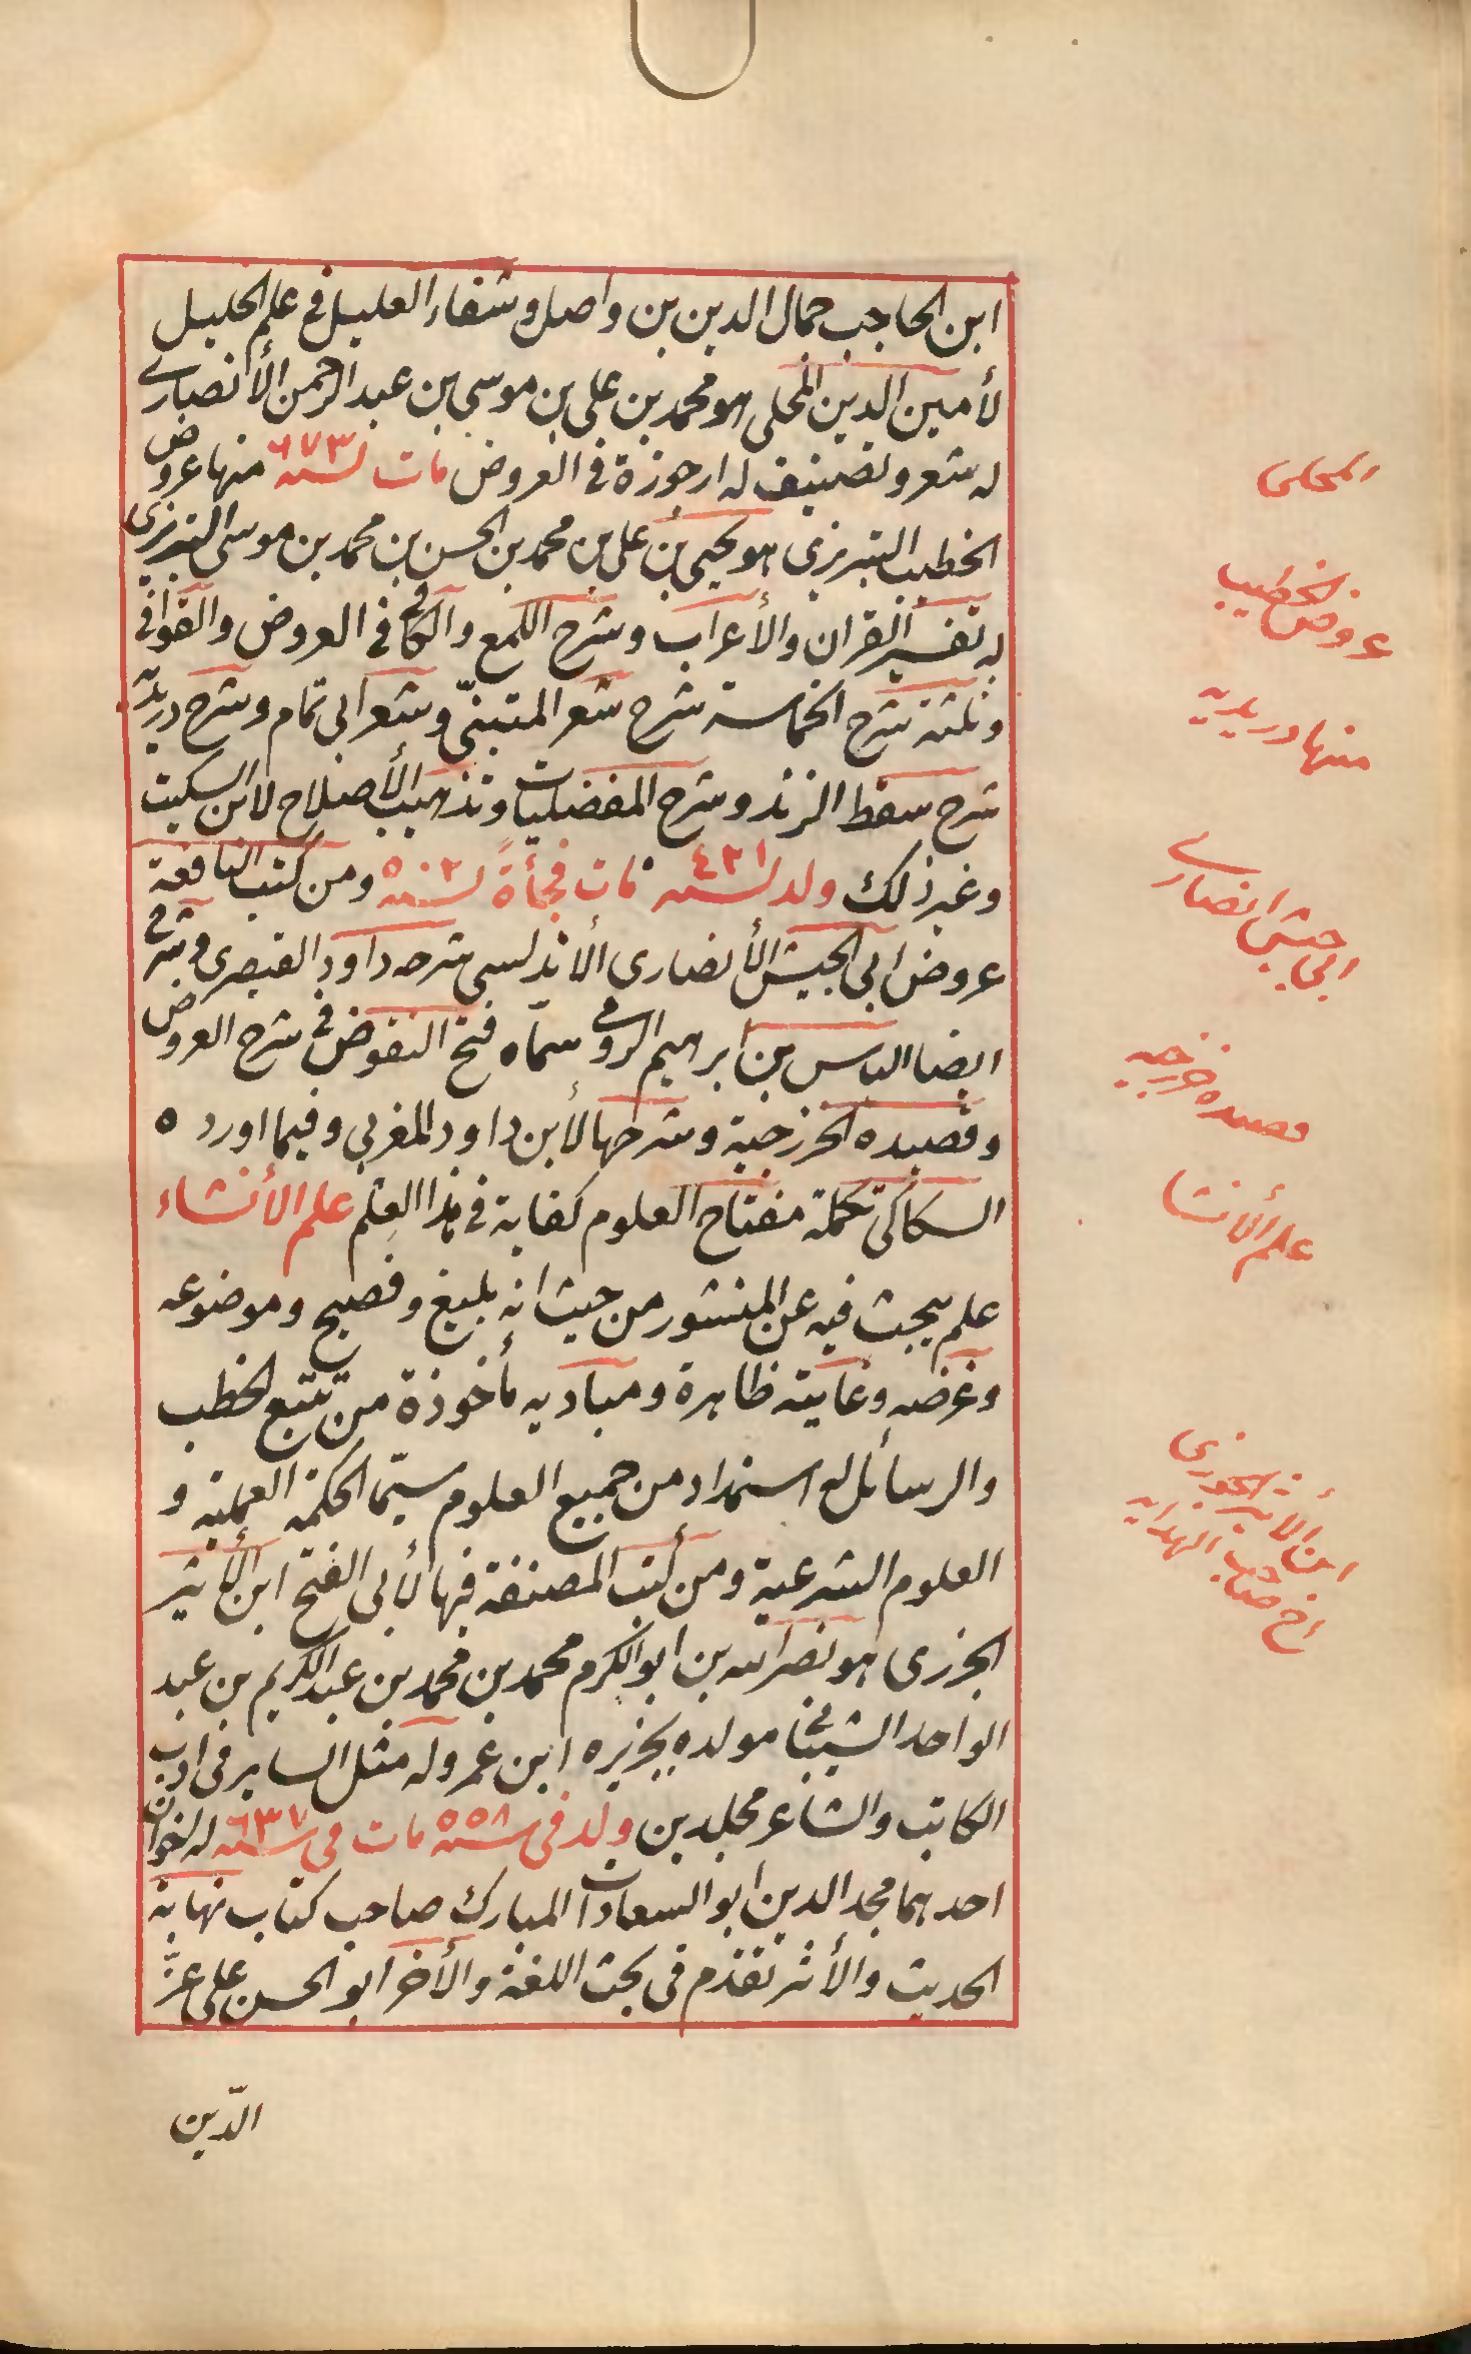 ابن الحاجب جمال الدين بن واصل و شفاء العليل فى علم الخليل
لأمين الدين المحلى هو محمد بن على بن موسى بن عبد الرحمن الأنصارى
له شعر وتصنيف له ارجوزة فى العروض مات سنه ٦٧٣ منها عروض
الخطيب التبريزى هو يحيى بن على بن محمد بن الحسن بن محمد بن موسى التبريزى
له تفسير القران والأعراب وشرح اللمع والكافى فى العروض والقوافى
وثلثة شرح الحماسة شرح شعر المتنبّى وشعر ابى تمام وشرح دريديّه
شرح سقط الزند وشرح المفضليات وتذهيب الأصلاح لابن السكيت
وغير ذلك ولد سنه ٤٢١ مات فجأةً سنه ٥٠٢ ومن كتب النافعة
عروض ابى الجيش الأنصارى الأندلسى شرحه داود القيصرى وشرح
ايضا الياس بن ابرهيم الرومى سمّاه فتح النقوض فى شرح العروض
وقصيده الخزرجية وشرحها لأبن داود المغربى وفيما اورده
السكاكى تكملة مفتاح العلوم كفاية فى هذا العلم علم الأنشاء
علم يبحث فيه عن المنشور من حيث انه بليغ وفصيح وموضوعه
وغرضه وغايته ظاهرة ومباديه مأخوذة من تتبع الخطب
والرسائل له استمداد من جميع العلوم سيّما الحكمة العملية و
العلوم الشرعية ومن كتب المصنفة فيها لأبى الفتح ابن الأثير
الجزرى هو نصر الله بن ابو الكرم محمد بن محمد بن عبد الكريم بن عبد
الواحد الشيبانى مولده بجزيره ابن عمر وله مثل الساير فى ادب
الكاتب والشاعر مجلدين ولد فى سنه ٥٥٨ مات فى سنه ٦٣٧ له اخوان
احدهما مجد الدين ابو السعادات المبارك صاحب كتاب نهاية
الحديث والأثر تقدم فى بحث اللغة والأخر ابو الحسن على عزّ
الدّين
المحلى
عروض الخطيب
منها دريديه
ابى جيش انصارى
قصيده خزرجيه
علم الأنشا
ابن الأثير الجزرى
اخ صاحب النهايه